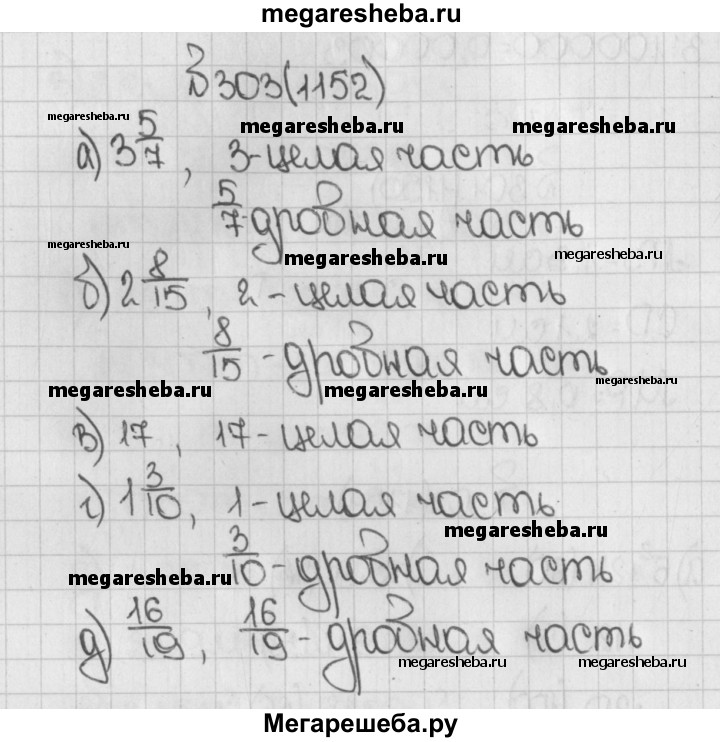 megaresheba.ru
№303(1152)
megaresheba.ru
megaresheba.ru
megaresheba.ru
а) 3 5/7, 3-целая часть
5/7-дробная часть
megaresheba.ru
megaresheba.ru
megaresheba.ru
б) 2 8/15, 2-целая часть
8/15-дробная часть
megaresheba.ru
megaresheba.ru
megaresheba.ru
в) 17, 17-целая часть
г) 1 3/10, 1-целая часть
megaresheba.ru
3/10-дробная часть
megaresheba.ru
д) 16/19, 16/19-дробная часть
megaresheba.ru
megaresheba.ru
Мегарешеба.ру